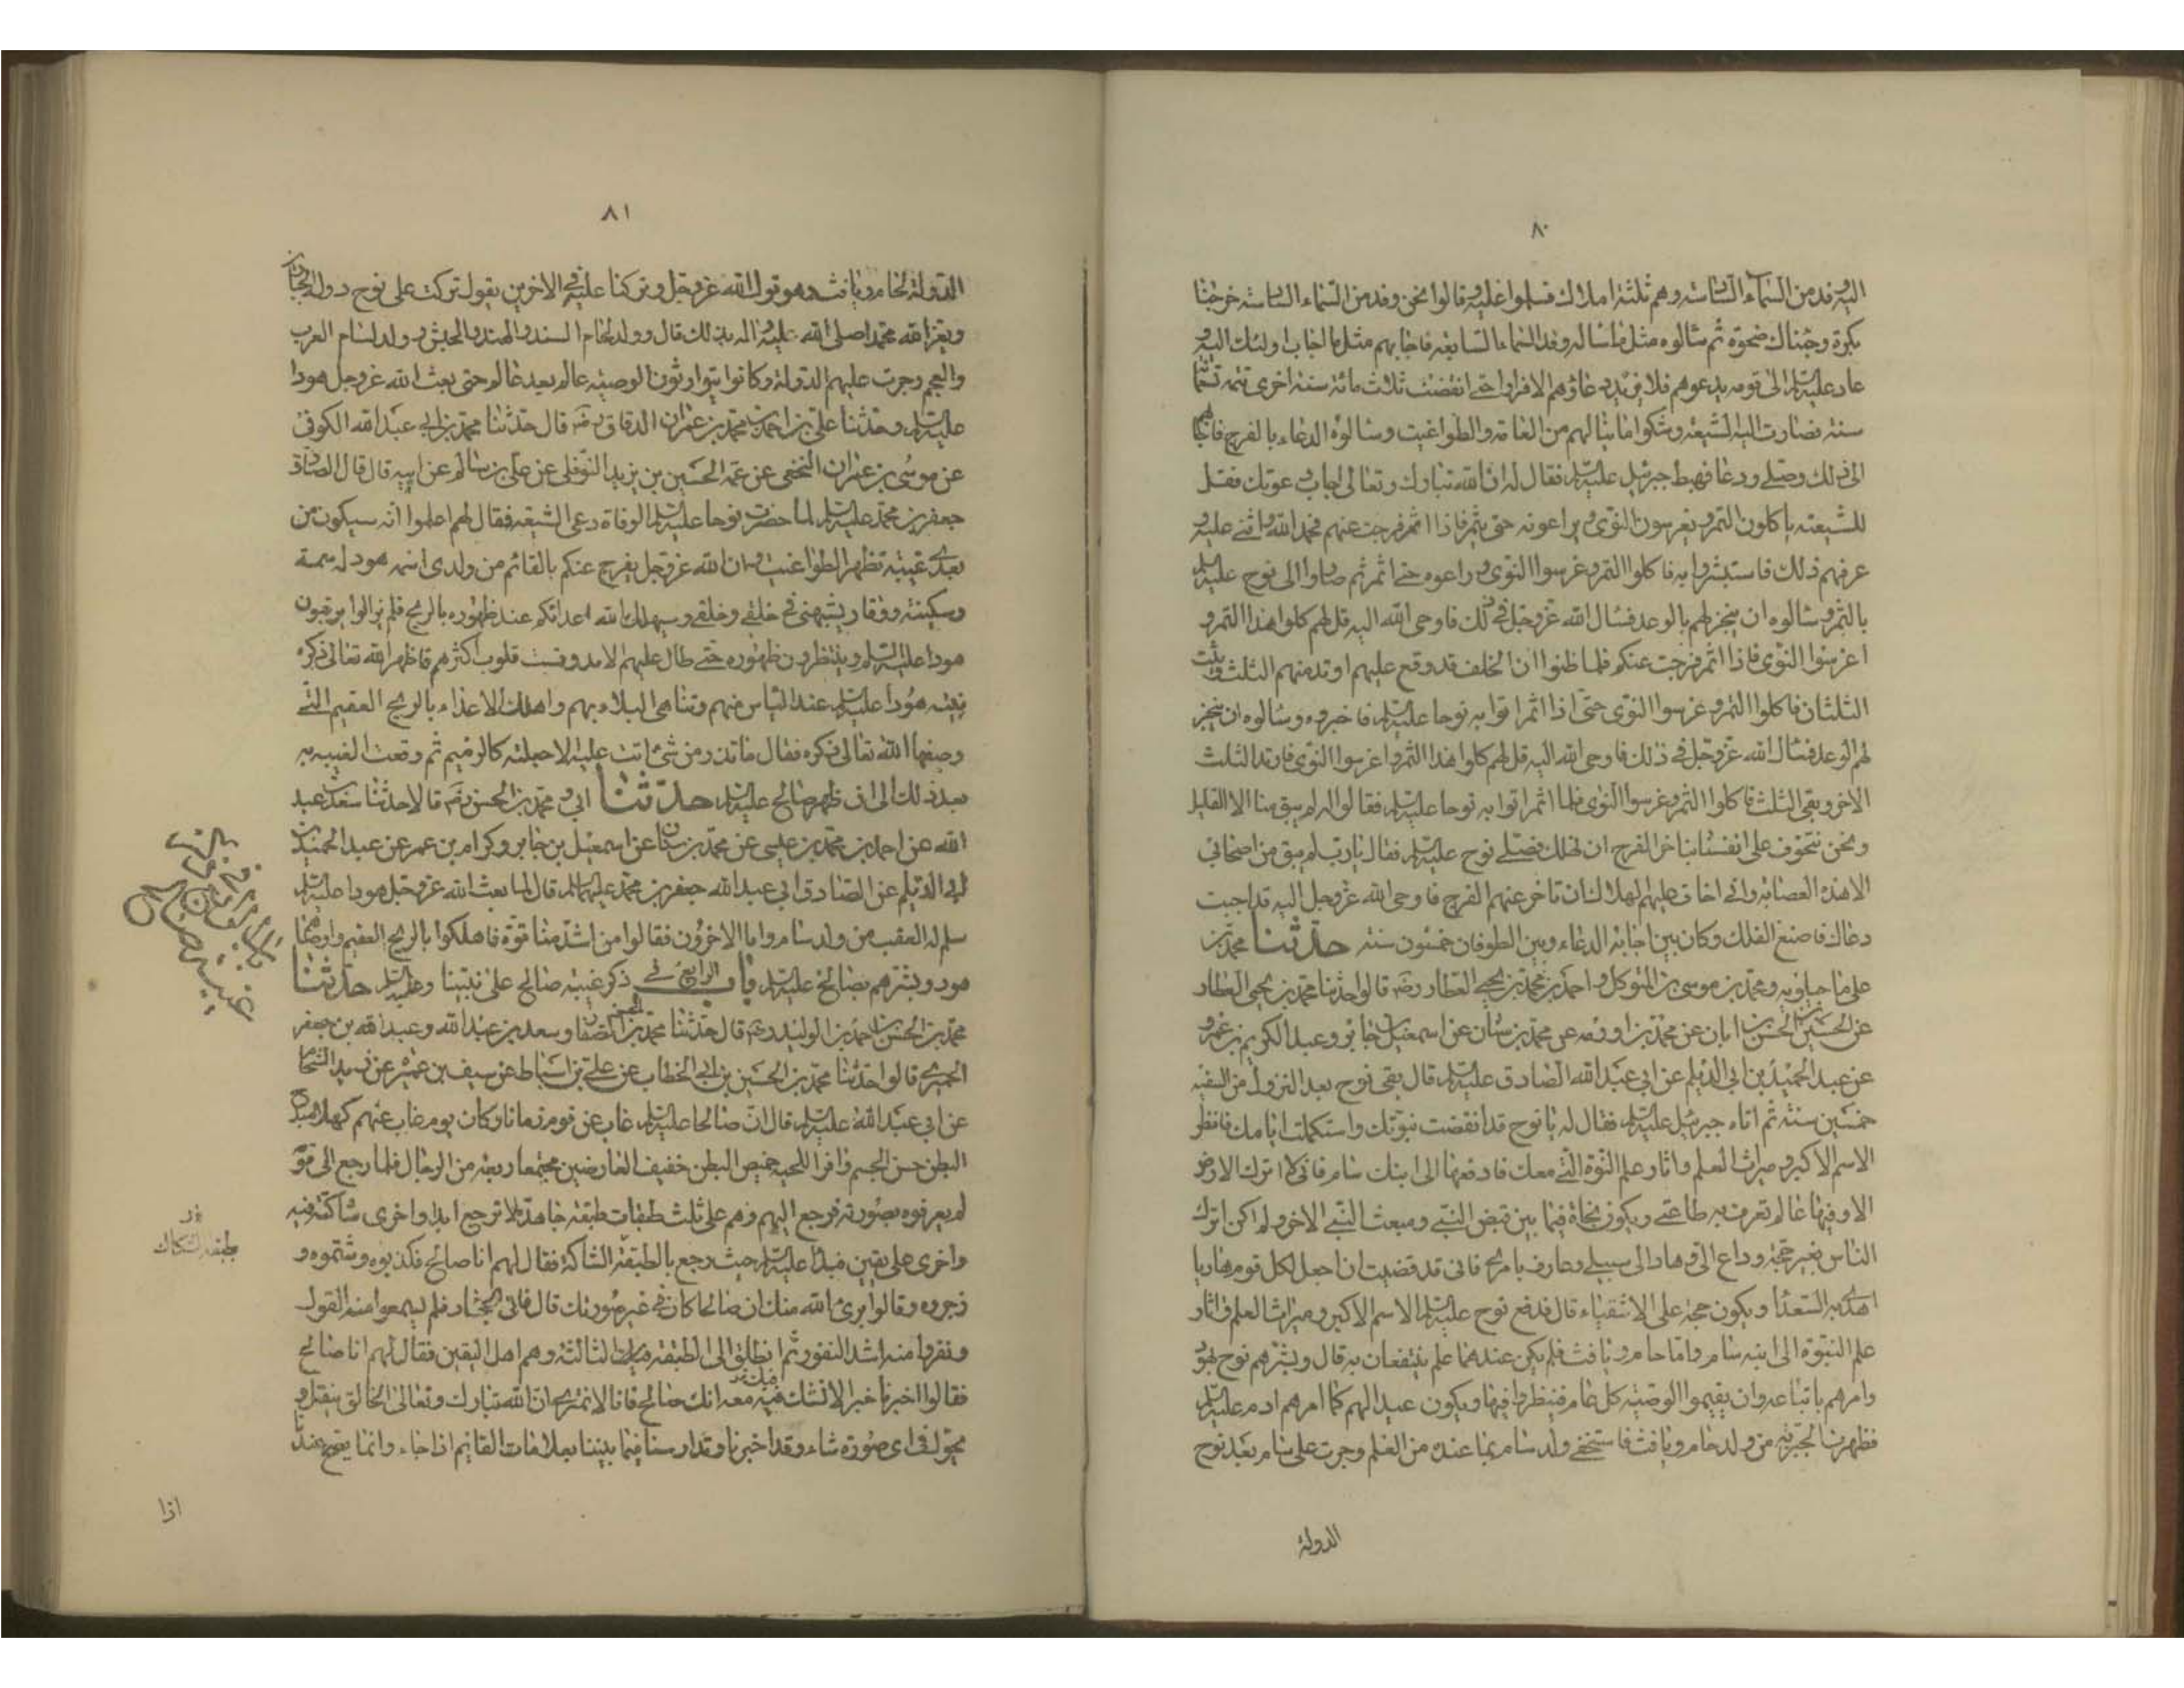 ٨٠
اليه وفد من السماء السادسة وهم ثلثة املاك فسلموا عليه وقالوا نحن وفد من السماء السادسة خرجنا
بكرة وجئناك ضحوة ثم سالوه مثل ما ساله وفد السماء السابعة فاجابهم مثل ما اجاب اولئك اليه و
عاد عليه السلم الى قومه يدعوهم فلا يزيدهم دعاؤه الا فرارا حتى انقضت ثلاث مائة سنة اخرى تتمة تسعمائة
سنة فصارت اليه الشيعة وشكوا ما ينالهم من العامة والطواغيت وسالوه الدعاء بالفرج فاجابهم
الى ذلك وصلى ودعا فهبط جبرئيل عليه السلم فقال له ان الله تبارك وتعالى اجاب دعوتك فقل
للشيعة ياكلون التمر ويغرسون النوى ويراعونه حتى يثمر فاذا اثمر فرجت عنهم فحمد الله واثنى عليه و
عرفهم ذلك فاستبشروا به فاكلوا التمر وغرسوا النوى وراعوه حتى اثمر ثم صاروا الى نوح عليه السلم
بالتمر وسالوه ان ينجز لهم بالوعد فسال الله عز وجل في ذلك فاوحى الله اليه قل لهم كلوا هذا التمر و
اغرسوا النوى فاذا اثمر فرجت عنكم فلما ظنوا ان الخلف قد وقع عليهم ارتد منهم الثلث وثبت
الثلثان فاكلوا التمر وغرسوا النوى حتى اذا اثمر اتوا به نوحا عليه السلم فاخبروه وسالوه ان ينجز
لهم الوعد فسال الله عز وجل في ذلك فاوحى الله اليه قل لهم كلوا هذا التمر واغرسوا النوى فارتد الثلث
الاخر وبقي الثلث فاكلوا التمر وغرسوا النوى فلما اثمر اتوا به نوحا عليه السلم فقالوا له لم يبق منا الا القليل
ونحن نتخوف على انفسنا بتاخر الفرج ان نهلك فصلى نوح عليه السلم فقال يا رب لم يبق من اصحابي
الا هذه العصابة واني اخاف عليهم الهلاك ان تاخر عنهم الفرج فاوحى الله عز وجل اليه قد اجبت
دعاك فاصنع الفلك وكان بين اجابة الدعاء وبين الطوفان خمسون سنة حدثنا محمد بن
علي ماجيلويه ومحمد بن موسى بن المتوكل واحمد بن محمد بن يحيى العطار رضه قالوا حدثنا محمد بن يحيى العطار
عن الحسين بن الحسن بن ابان عن محمد بن اورمه عن محمد بن سنان عن اسمعيل بن جابر وعبد الكريم بن عمرو
عن عبد الحميد بن ابي الديلم عن ابي عبد الله الصادق عليه السلم قال بقى نوح بعد النزول من السفينة
خمسين سنة ثم اتاه جبرئيل عليه السلم فقال له يا نوح قد انقضت نبوتك واستكملت ايامك فانظر
الاسم الاكبر وميراث العلم واثار علم النبوة التي معك فادفعها الى ابنك سام فاني لا اترك الارض
الا وفيها عالم تعرف به طاعتي ويكون نجاة فيما بين قبض النبي ومبعث النبي الاخر ولم اكن اترك
الناس بغير حجة وداع الي وهاد الى سبيلي وعارف بامري فاني قد قضيت ان اجعل لكل قوم هاديا
اهدى به السعداء ويكون حجة على الاشقياء قال فدفع نوح عليه السلم الاسم الاكبر وميراث العلم واثار
علم النبوة الى ابنه سام واما حام ويافث فلم يكن عندهما علم ينتفعان به قال وبشرهم نوح بهود
وامرهم باتباعه وان يقيموا الوصية كل عام فينظروا فيها ويكون عيدا لهم كما امرهم ادم عليه السلم
فظهرت الجبرية من ولد حام ويافث فاستخفى ولد سام بما عندهم من العلم وجرت على سام بعد نوح
الدولة
٨١
الدولة لحام ويافث وهو قول الله عز وجل وتركنا عليه في الاخرين يقول تركت على نوح دولة الجبارين
ويعز الله محمدا صلى الله عليه واله بذلك قال وولد لحام السند والهند والحبش وولد لسام العرب
والعجم وجرت عليهم الدولة وكانوا يتوارثون الوصية عالم بعد عالم حتى بعث الله عز وجل هودا
عليه السلم وحدثنا علي بن احمد بن محمد بن عمران الدقاق رضه قال حدثنا محمد بن ابي عبد الله الكوفى
عن موسى بن عمران النخعى عن عمه الحسين بن يزيد النوفلى عن علي بن سالم عن ابيه قال قال الصادق
جعفر بن محمد عليه السلم لما حضرت نوحا عليه السلم الوفاة دعى الشيعة فقال لهم اعلموا انه سيكون من
بعدى غيبة تظهر الطواغيت وان الله عز وجل يفرج عنكم بالقائم من ولدى اسمه هود له سمة
وسكينة ووقار يشبهنى في خلقى وخلقى وسيهلك الله اعدائكم عند ظهوره بالريح فلم يزالوا يرقبون
هودا عليه السلم وينتظرون ظهوره حتى طال عليهم الامد وقست قلوب اكثرهم فاظهر الله تعالى ذكره
نبيه هودا عليه السلم عند الياس منهم وتناهى البلاء بهم واهلك الاعداء بالريح العقيم التى
وصفها الله تعالى ذكره فقال ما تذر من شئ اتت عليه الا جعلته كالرميم ثم وقعت الغيبة به
بعد ذلك الى ان ظهر صالح عليه السلم حدثنا ابى و محمد بن الحسن رضه قالا حدثنا سعد بن عبد
الله عن احمد بن محمد بن عيسى عن محمد بن سنان عن اسمعيل بن جابر وكرام بن عمر عن عبد الحميد بن
ابى الديلم عن الصادق ابي عبد الله جعفر بن محمد عليهما السلم قال لما بعث الله عز وجل هودا عليه السلم
سلم له العقب من ولد سام واما الاخرون فقالوا من اشد منا قوة فاهلكوا بالريح العقيم واوصاهم
هود وبشرهم بصالح عليه السلم باب الرابع في ذكر غيبة صالح على نبينا وعليه السلم حدثنا
محمد بن الحسن بن احمد بن الوليد رضه قال حدثنا محمد بن الحسن الصفار وسعد بن عبد الله وعبد الله بن جعفر
الحميرى قالوا حدثنا محمد بن الحسين بن ابى الخطاب عن علي بن اسباط عن سيف بن عميره عن زيد الشحام
عن ابى عبد الله عليه السلم قال ان صالحا عليه السلم غاب عن قومه زمانا وكان يوم غاب عنهم كهلا مبدح
البطن حسن الجسم وافر اللحية خميص البطن خفيف العارضين مجتمعا ربعة من الرجال فلما رجع الى قومه
لم يعرفوه بصورته فرجع اليهم وهم على ثلث طبقات طبقة جاحدة لا ترجع ابدا واخرى شاكة فيه
واخرى على يقين فبدا عليه السلم حيث رجع بالطبقة الشاكة فقال لهم انا صالح فكذبوه وشتموه و
زجروه وقالوا برئ الله منك ان صالحا كان في غير صورتك قال فاتى الجحاد فلم يسمعوا منه القول
ونفروا منه اشد النفور ثم انطلق الى الطبقة الثالثة وهم اهل اليقين فقال لهم انا صالح
فقالوا اخبرنا خبرا لا نشك فيه معه انك صالح فانا لا نمترى ان الله تبارك وتعالى الخالق ينقل و
يحول في اى صورة شاء وقد اخبرنا وتدارسنا فيما بيننا بعلامات القائم اذا جاء وانما يصح عندنا
اذا